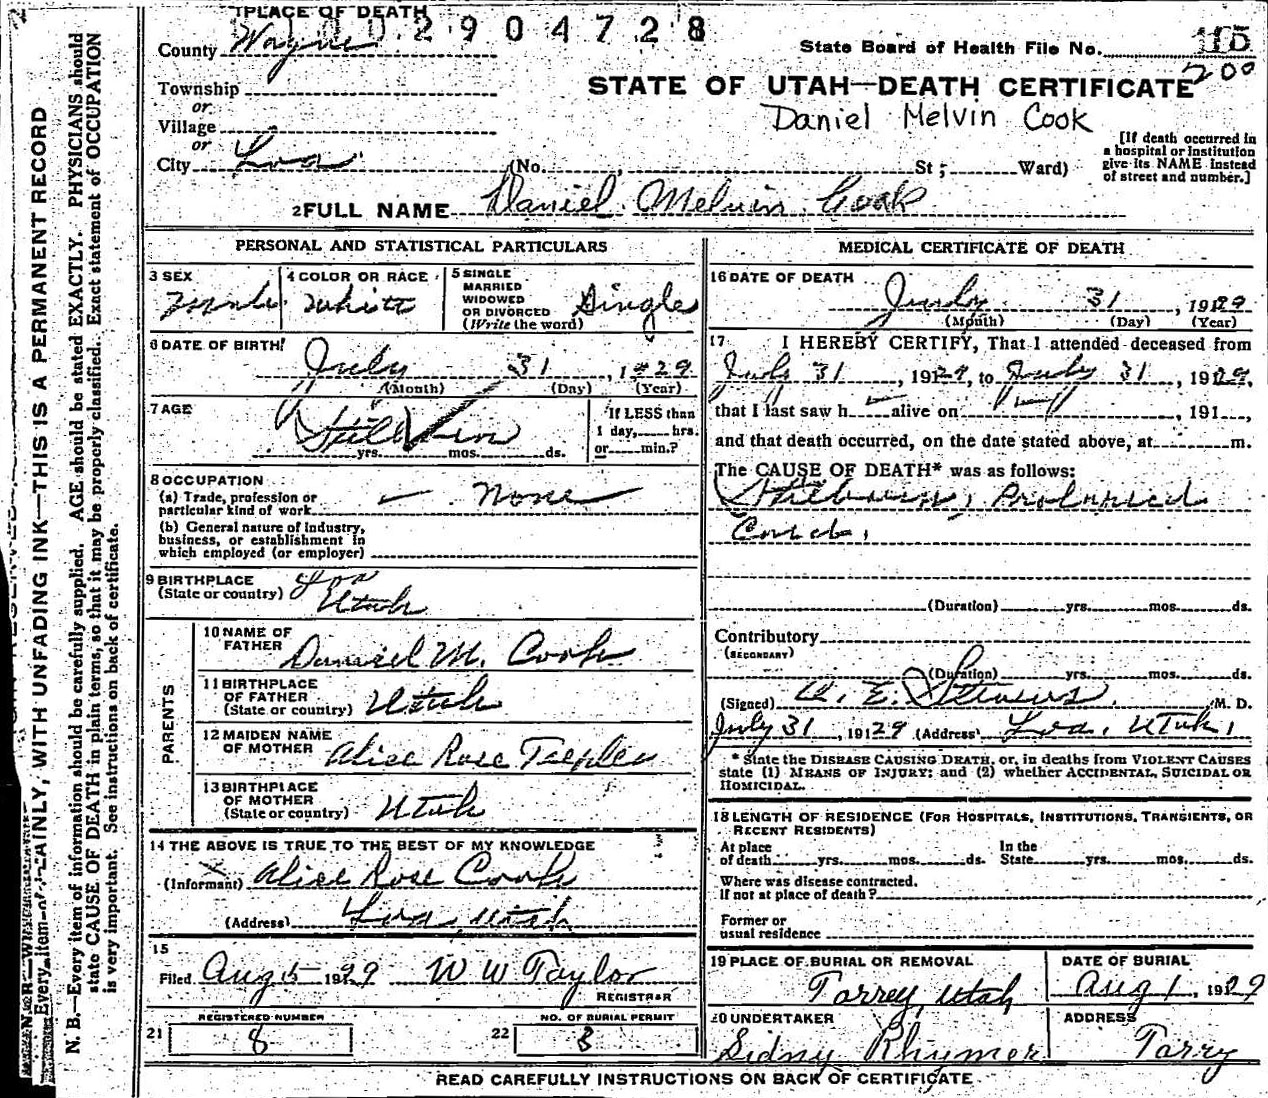 1 PLACE OF DEATH
2904728
County Wayne
State Board of Health File No. 115
200
Township
or
Village
or
City Loa
STATE OF UTAH—DEATH CERTIFICATE
Daniel Melvin Cook
(No. , St ; Ward)
[If death occurred in
a hospital or institution
give its NAME instead
of street and number.]
2 FULL NAME Daniel Melvin Cook
PERSONAL AND STATISTICAL PARTICULARS
3 SEX
Male
4 COLOR OR RACE
White
5 SINGLE
MARRIED
WIDOWED
OR DIVORCED
(Write the word)
Single
6 DATE OF BIRTH
July 31, 1929
(Month) (Day) (Year)
7 AGE
Stillborn
yrs. mos. ds.
If LESS than
1 day, hrs.
or min.?
8 OCCUPATION
(a) Trade, profession or
particular kind of work None
(b) General nature of industry,
business, or establishment in
which employed (or employer)
9 BIRTHPLACE
(State or country)
Loa
Utah
PARENTS
10 NAME OF
FATHER
Daniel M. Cook
11 BIRTHPLACE
OF FATHER
(State or country)
Utah
12 MAIDEN NAME
OF MOTHER
Alice Rose Teeples
13 BIRTHPLACE
OF MOTHER
(State or country)
Utah
14 THE ABOVE IS TRUE TO THE BEST OF MY KNOWLEDGE
(Informant) Alice Rose Cook
(Address) Loa, Utah
15
Filed Aug 5 1929 W W Taylor
REGISTRAR
21 REGISTERED NUMBER
8
22 NO. OF BURIAL PERMIT
8
MEDICAL CERTIFICATE OF DEATH
16 DATE OF DEATH
July 31, 1929
(Month) (Day) (Year)
17 I HEREBY CERTIFY, That I attended deceased from
July 31, 1929, to July 31, 1929,
that I last saw h alive on , 191 ,
and that death occurred, on the date stated above, at m.
The CAUSE OF DEATH* was as follows:
Stillborn, Prolapsed
Cord.
(Duration) yrs. mos. ds.
Contributory
(SECONDARY)
(Duration) yrs. mos. ds.
(Signed) E. Stevens M. D.
July 31, 1929 (Address) Loa, Utah
* State the DISEASE CAUSING DEATH, or, in deaths from VIOLENT CAUSES
state (1) MEANS OF INJURY; and (2) whether ACCIDENTAL, SUICIDAL OR
HOMICIDAL.
18 LENGTH OF RESIDENCE (FOR HOSPITALS, INSTITUTIONS, TRANSIENTS, OR
RECENT RESIDENTS)
At place
of death yrs. mos. ds.
In the
State yrs. mos. ds.
Where was disease contracted.
If not at place of death?
Former or
usual residence
19 PLACE OF BURIAL OR REMOVAL
Torrey, Utah
DATE OF BURIAL
Aug 1, 1929
20 UNDERTAKER
Sidney Rhymer
ADDRESS
Torry
READ CAREFULLY INSTRUCTIONS ON BACK OF CERTIFICATE
PLAINLY, WITH UNFADING INK—THIS IS A PERMANENT RECORD
N. B.—Every item of information should be carefully supplied. AGE should be stated EXACTLY. PHYSICIANS should
state CAUSE OF DEATH in plain terms, so that it may be properly classified. Exact statement of OCCUPATION
is very important. See instructions on back of certificate.